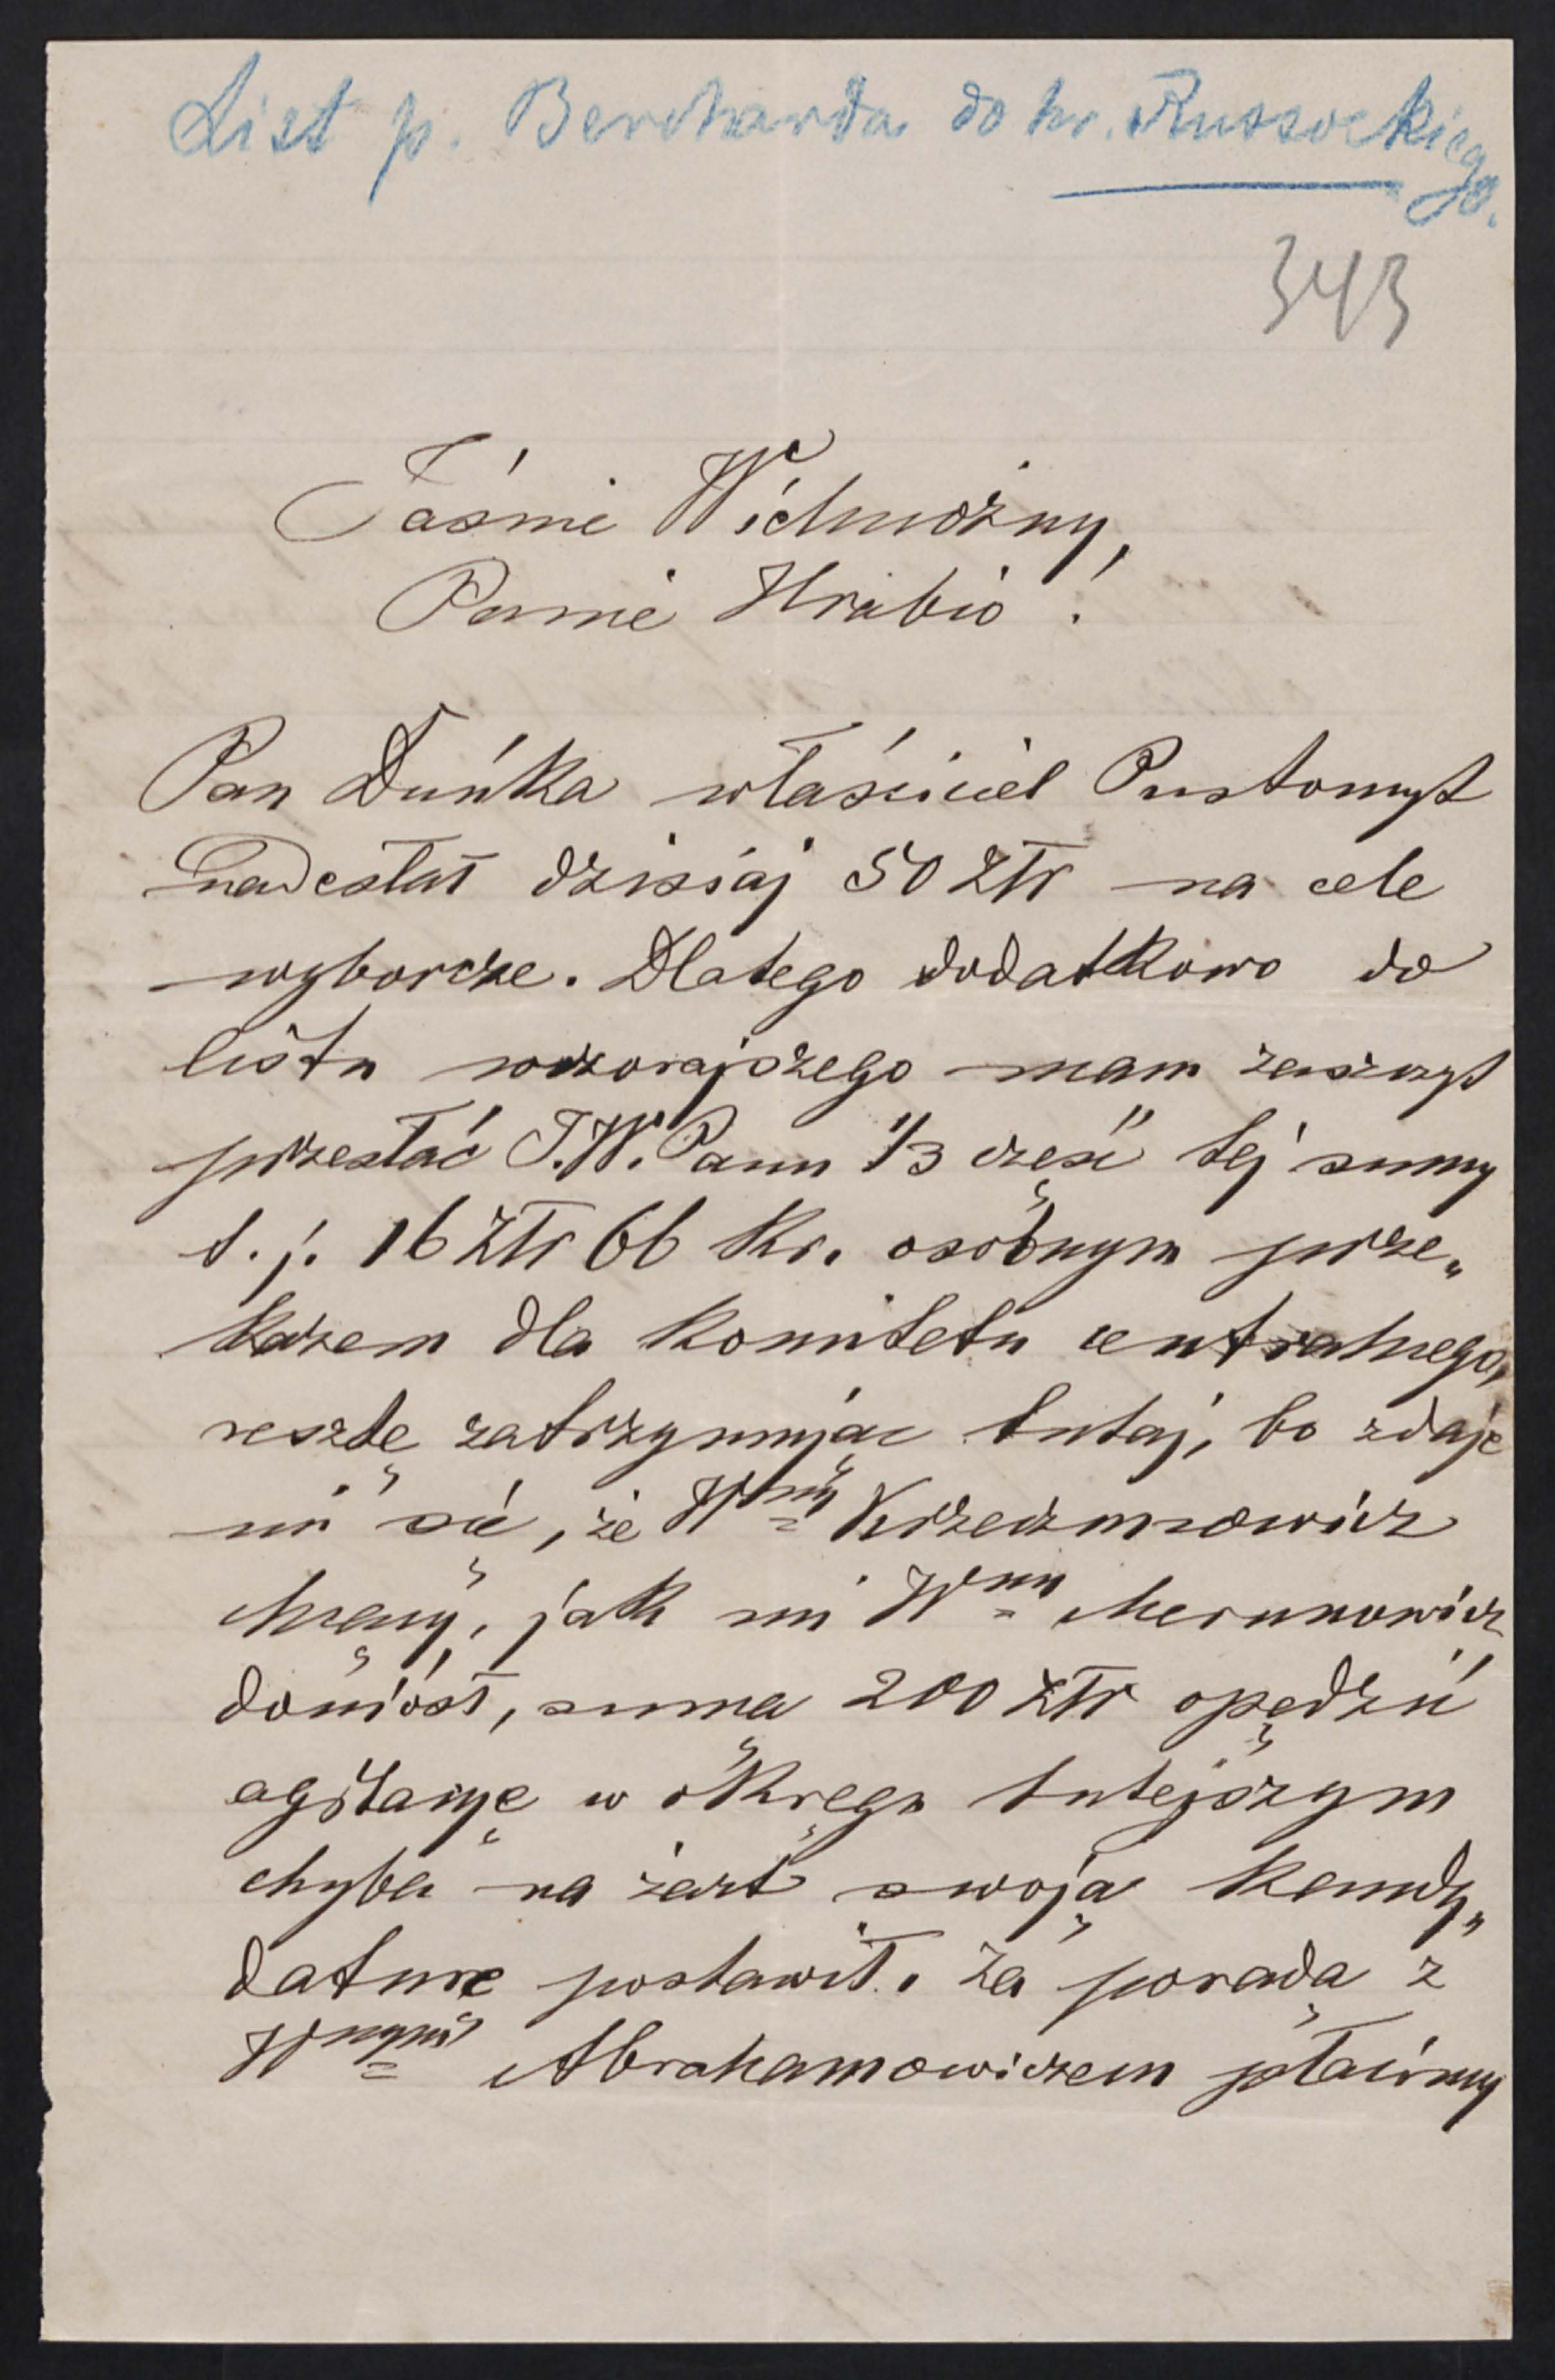 List p. Bercharda do hr. Russockiego.
343
Jaśnie Wielmożny,
Panie Hrabio!
Pan Duńka właściciel Pustomyt
nadesłał dzisiaj 50 złr na cele
wyborcze. Dlatego dodatkowo do
listu wczorajszego mam zaszczyt
przesłać J.W. Panu 1/3 część tej sumy
t. j. 16 złr 66 kr. osobnym prze„
kazem dla Komitetu centralnego,
resztę zatrzymując tutaj, bo zdaje
mi się, że Wny Krzeczunowicz
chcący, jak mi Wny Merunowicz
doniósł, sumą 200 złr opędzić
agitacyę w okręgu tutejszym
chyba na żart swoją kandy„
daturę postawił. Za poradą z
Wnym Abrahamowiczem płacimy